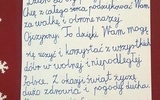 Chcę z całego serca, podziękować Wam
za walkę i obronę naszej
Ojczyzny. To dzięki Wam mogę
się uczyć i korzystać z wszystkich
dóbr w wolnej i niepodległej
Polsce. Z okazji świąt życzę
dużo zdrowia i pogody ducha.